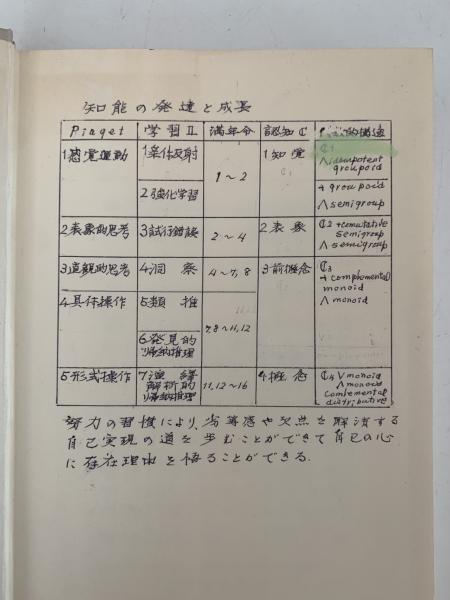 知能の発達と成長
Piaget 学習Ⅱ 満年令 認知C 的構造
1感覚運動 1条件反射 1~2 1知覚 C1
∧idempotent
groupoid
2強化学習 + groupoid
∧ semigroup
2表象的思考 3試行錯誤 2~4 2表象 C2 +comutative
semigroup
∧ semigroup
3直観的思考 4洞察 4~7,8 3前概念 C3
+ complemental
monoid
∧ monoid
4具体操作 5類推 7,8~11,12
6発見的
帰納推理
5形式操作 7演繹 11,12~16 4概念 C4 ∨monoid
解析的 ∧monoid
帰納推理 comlemental
distributive
努力の習慣により、劣等感や欠点を解消する
自己実現の道を歩むことができて自己の心
に存在理由を悟ることができる.